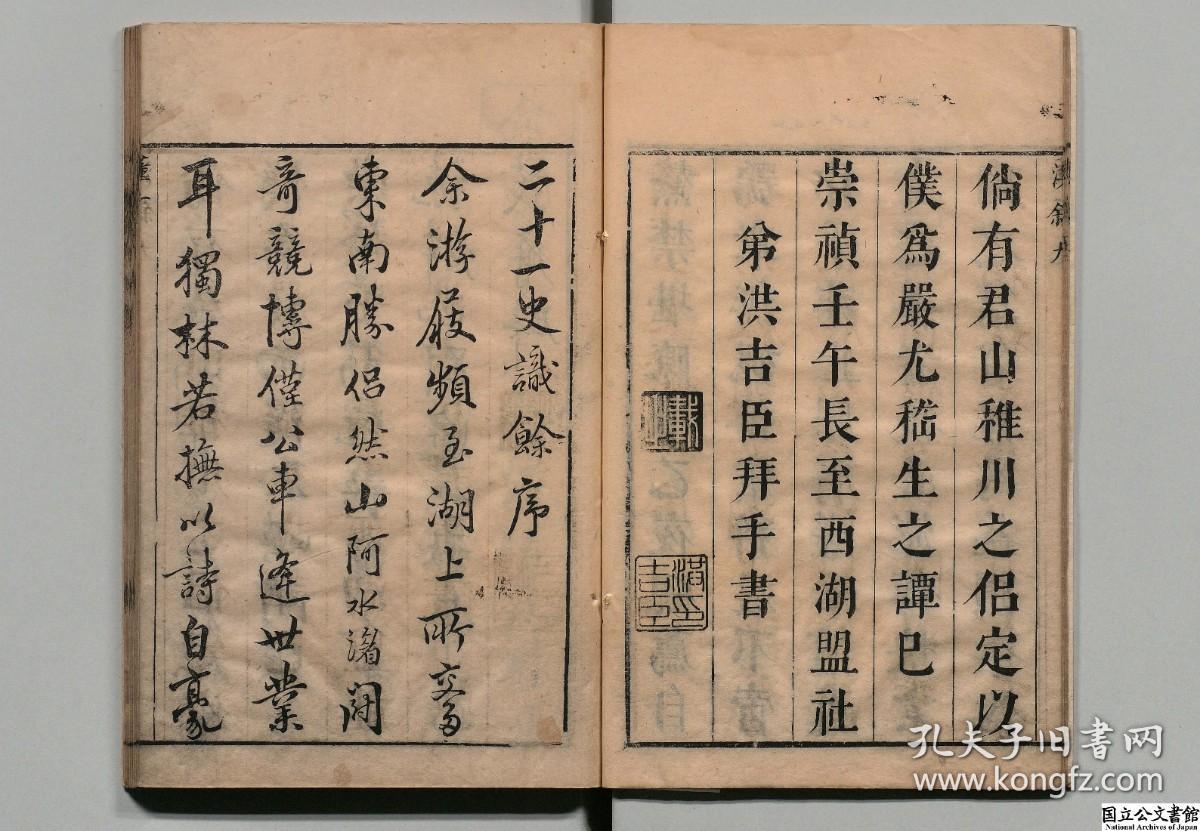 倘有君山稚川之侣定以
僕爲嚴尤嵇生之譚巳
崇禎壬午長至西湖盟社
弟洪吉臣拜手書
洪印吉臣
二十一史識餘序
余游屐頻至湖上所交多
東南勝侣然山阿水渚閎
奇競博僅公車逢世業
耳獨林若撫以詩自豪
孔夫子旧书网
www.kongfz.com
国立公文書館
National Archives of Japan